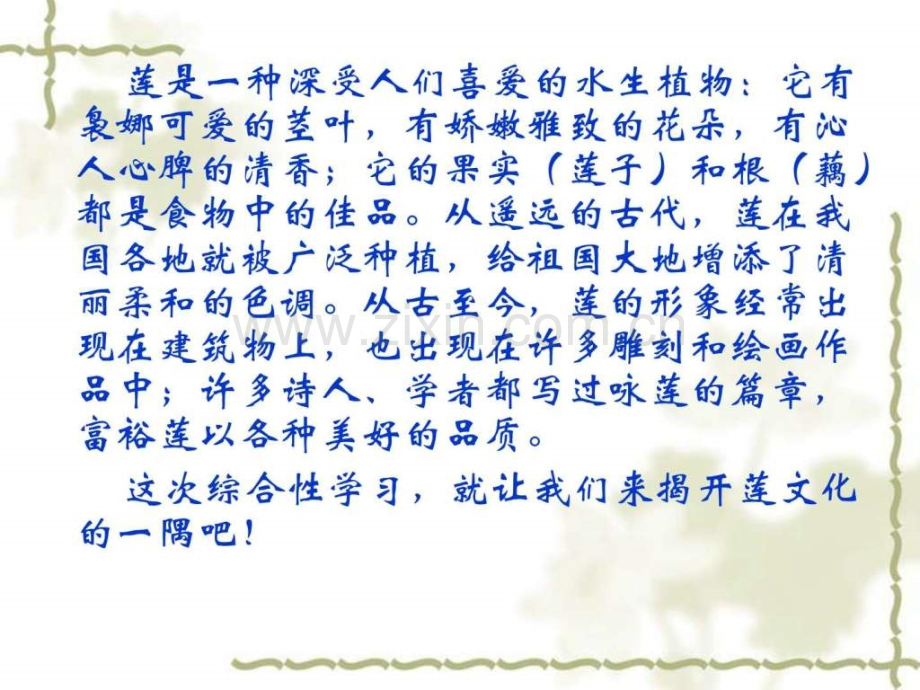 莲是一种深受人们喜爱的水生植物：它有
袅娜可爱的茎叶，有娇嫩雅致的花朵，有沁
人心脾的清香；它的果实（莲子）和根（藕）
都是食物中的佳品。从遥远的古代，莲在我
国各地就被广泛种植，给祖国大地增添了清
丽柔和的色调。从古至今，莲的形象经常出
现在建筑物上，也出现在许多雕刻和绘画作
品中；许多诗人、学者都写过咏莲的篇章，
富裕莲以各种美好的品质。
这次综合性学习，就让我们来揭开莲文化
的一隅吧！
www.zixin.com.cn